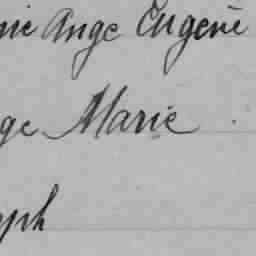 nie Ange Eugène
ge Marie
eph